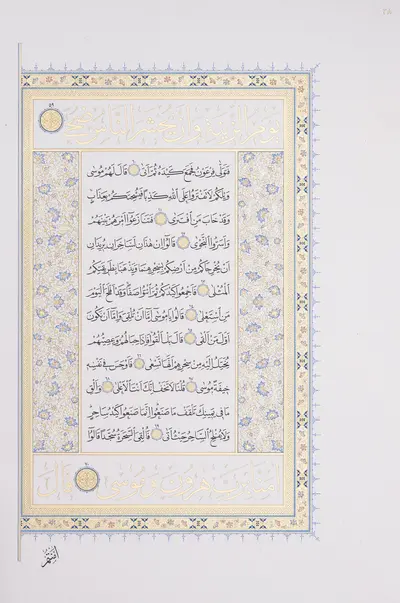 يَوْمُ الزِّينَةِ وَأَن يُحْشَرَ النَّاسُ ضُحًى
فَتَوَلَّىٰ فِرْعَوْنُ فَجَمَعَ كَيْدَهُ ثُمَّ أَتَىٰ قَالَ لَهُم مُّوسَىٰ
وَيْلَكُمْ لَا تَفْتَرُوا عَلَى اللَّهِ كَذِبًا فَيُسْحِتَكُم بِعَذَابٍ
وَقَدْ خَابَ مَنِ افْتَرَىٰ فَتَنَازَعُوا أَمْرَهُم بَيْنَهُمْ
وَأَسَرُّوا النَّجْوَىٰ قَالُوا إِنْ هَٰذَانِ لَسَاحِرَانِ يُرِيدَانِ
أَن يُخْرِجَاكُم مِّنْ أَرْضِكُم بِسِحْرِهِمَا وَيَذْهَبَا بِطَرِيقَتِكُمُ
الْمُثْلَىٰ فَأَجْمِعُوا كَيْدَكُمْ ثُمَّ ائْتُوا صَفًّا وَقَدْ أَفْلَحَ الْيَوْمَ
مَنِ اسْتَعْلَىٰ قَالُوا يَا مُوسَىٰ إِمَّا أَن تُلْقِيَ وَإِمَّا أَن نَّكُونَ
أَوَّلَ مَنْ أَلْقَىٰ قَالَ بَلْ أَلْقُوا فَإِذَا حِبَالُهُمْ وَعِصِيُّهُمْ
يُخَيَّلُ إِلَيْهِ مِن سِحْرِهِمْ أَنَّهَا تَسْعَىٰ فَأَوْجَسَ فِي نَفْسِهِ
خِيفَةً مُّوسَىٰ قُلْنَا لَا تَخَفْ إِنَّكَ أَنتَ الْأَعْلَىٰ وَأَلْقِ
مَا فِي يَمِينِكَ تَلْقَفْ مَا صَنَعُوا إِنَّمَا صَنَعُوا كَيْدُ سَاحِرٍ
وَلَا يُفْلِحُ السَّاحِرُ حَيْثُ أَتَىٰ فَأُلْقِيَ السَّحَرَةُ سُجَّدًا قَالُوا
آمَنَّا بِرَبِّ هَارُونَ وَمُوسَىٰ قَالَ
آمَنتُمْ